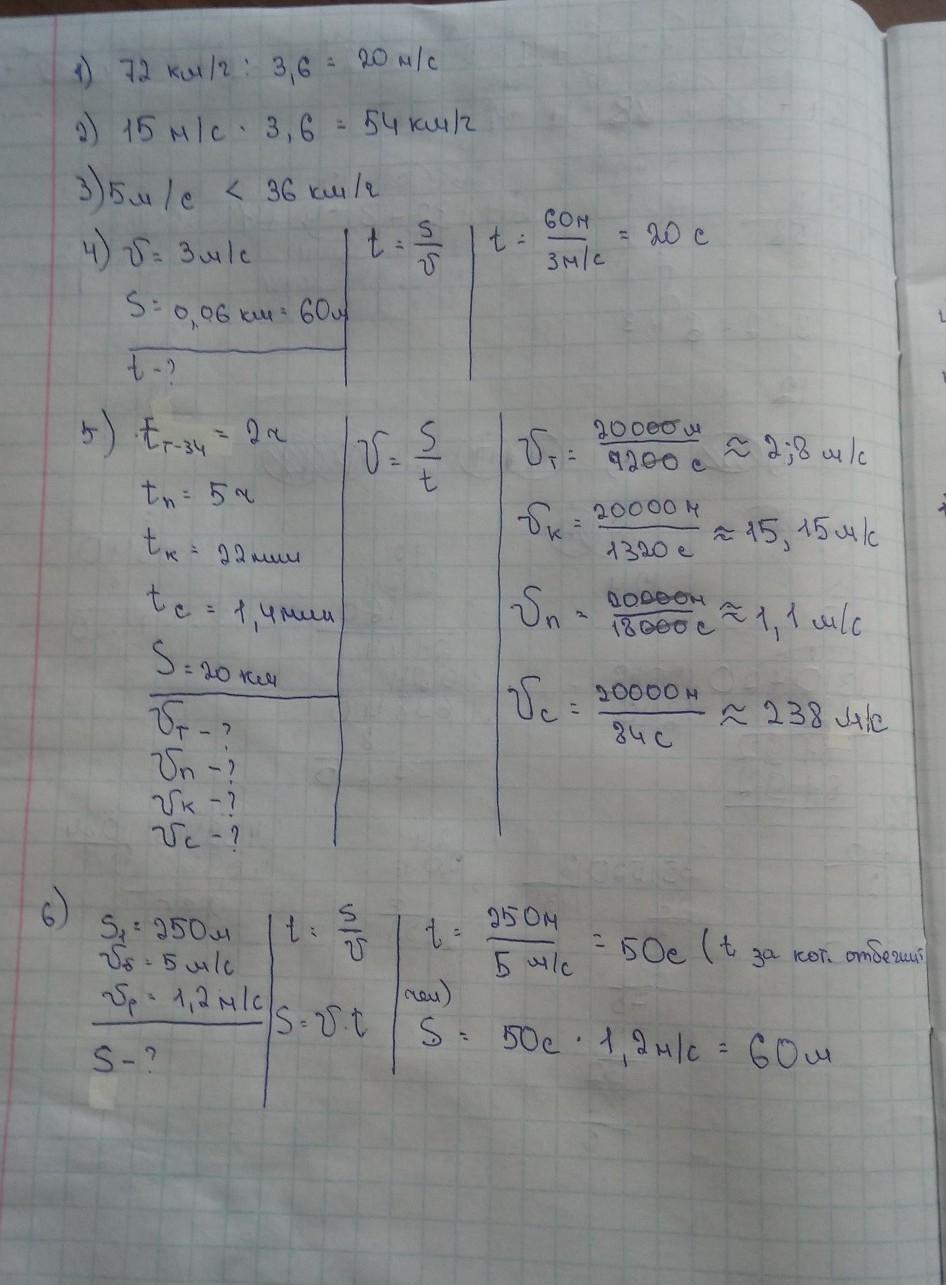 1) 72 км/г : 3,6 = 20 м/с
2) 15 м/с · 3,6 = 54 км/г
3) 5м/с < 36 км/г
4) v = 3м/с
S = 0,06 км = 60м
t - ?
t = S/v
t = 60м/3м/с = 20 с
5) tт-34 = 2ч
tп = 5ч
tк = 22мин
tс = 1,4мин
S = 20 км
vт - ?
vп - ?
vк - ?
vс - ?
v = S/t
vт = 20000м/7200 с ≈ 2,8 м/с
vк = 20000м/1320 с ≈ 15,15м/с
vп = 20000м/18000 с ≈ 1,1 м/с
vс = 20000м/84с ≈ 238 м/с
6) S1 = 250м
vб = 5 м/с
vр = 1,2 м/с
S - ?
t = S/v
S = v·t
t = 250м/5 м/с = 50с (t за кот.
S = 50с · 1,2м/с = 60м